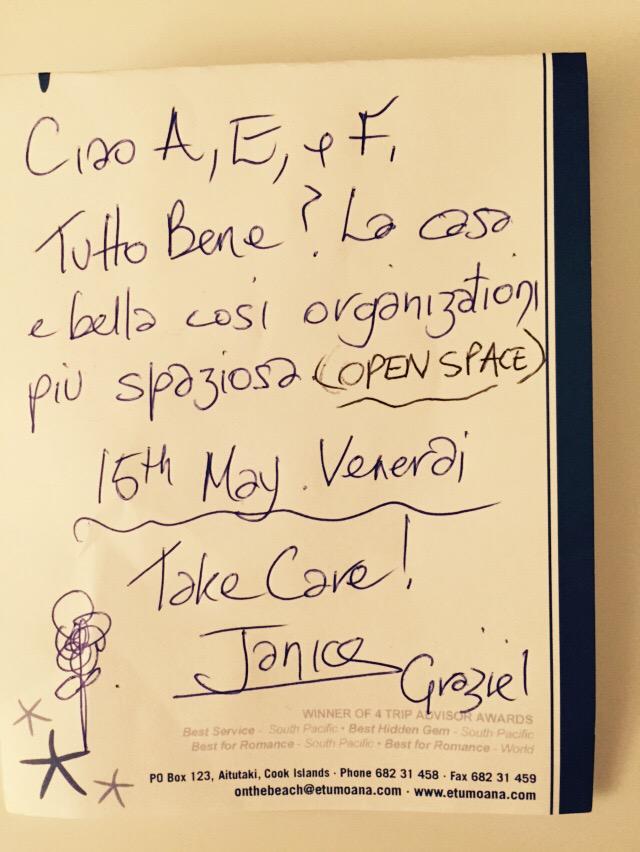 Ciao A, E, e F,
Tutto Bene? La casa
e bella così organizationi
più spaziosa. (OPEN SPACE)
15th May. Venerdi
Take Care!
Janice
Grazie!
WINNER OF 4 TRIP ADVISOR AWARDS
Best Service - South Pacific • Best Hidden Gem - South Pacific
Best for Romance - South Pacific • Best for Romance - World
PO Box 123, Aitutaki, Cook Islands · Phone 682 31 458 · Fax 682 31 459
onthebeach@etumoana.com · www.etumoana.com